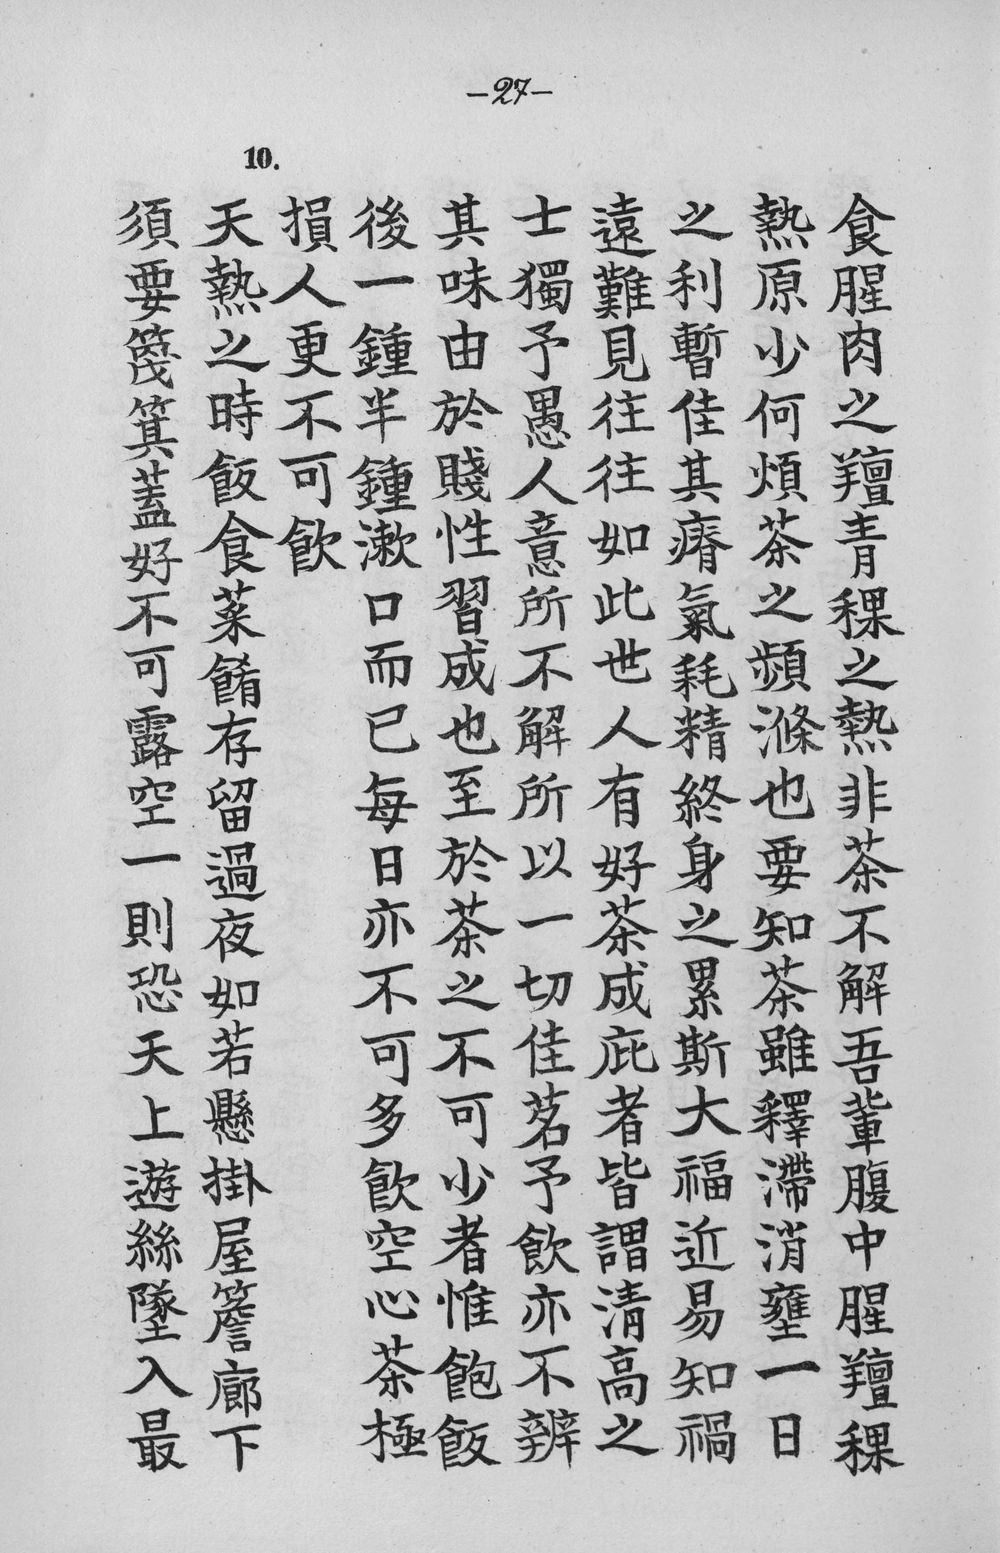 —27—
食腥肉之羶青稞之熱非茶不解吾輩腹中腥羶稞
熱原少何煩茶之頻滌也要知茶雖釋滯消壅一日
之利暫佳其瘠氣耗精終身之累斯大福近易知禍
遠難見往往如此世人有好茶成庇者皆謂清高之
士獨予愚人意所不解所以一切佳茗予飲亦不辨
其味由於賤性習成也至於茶之不可少者惟飽飯
後一鍾半鍾漱口而已每日亦不可多飲空心茶極
損人更不可飲
10.
天熱之時飯食菜餚存留過夜如若懸掛屋簷廊下
須要篾箕蓋好不可露空一則恐天上遊絲墜入最